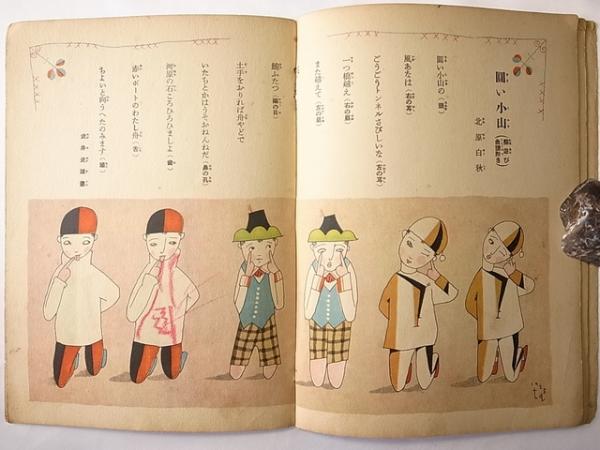 圓い小山
北原白秋
圓い小山の
風あたは(右の耳)
ごうごうトンネルさびしいな(左の耳)
一つ橋越えて(右の眉)
また越えて(左の眉)
ふたつ
土手をおりれば舟やどで
いたちとかはうそおねんねだ(鼻の孔)
河原の石ころひろひましよ(齒)
赤いボートのわたし舟(舌)
ちよいと向うへたのみます
武井武雄畫